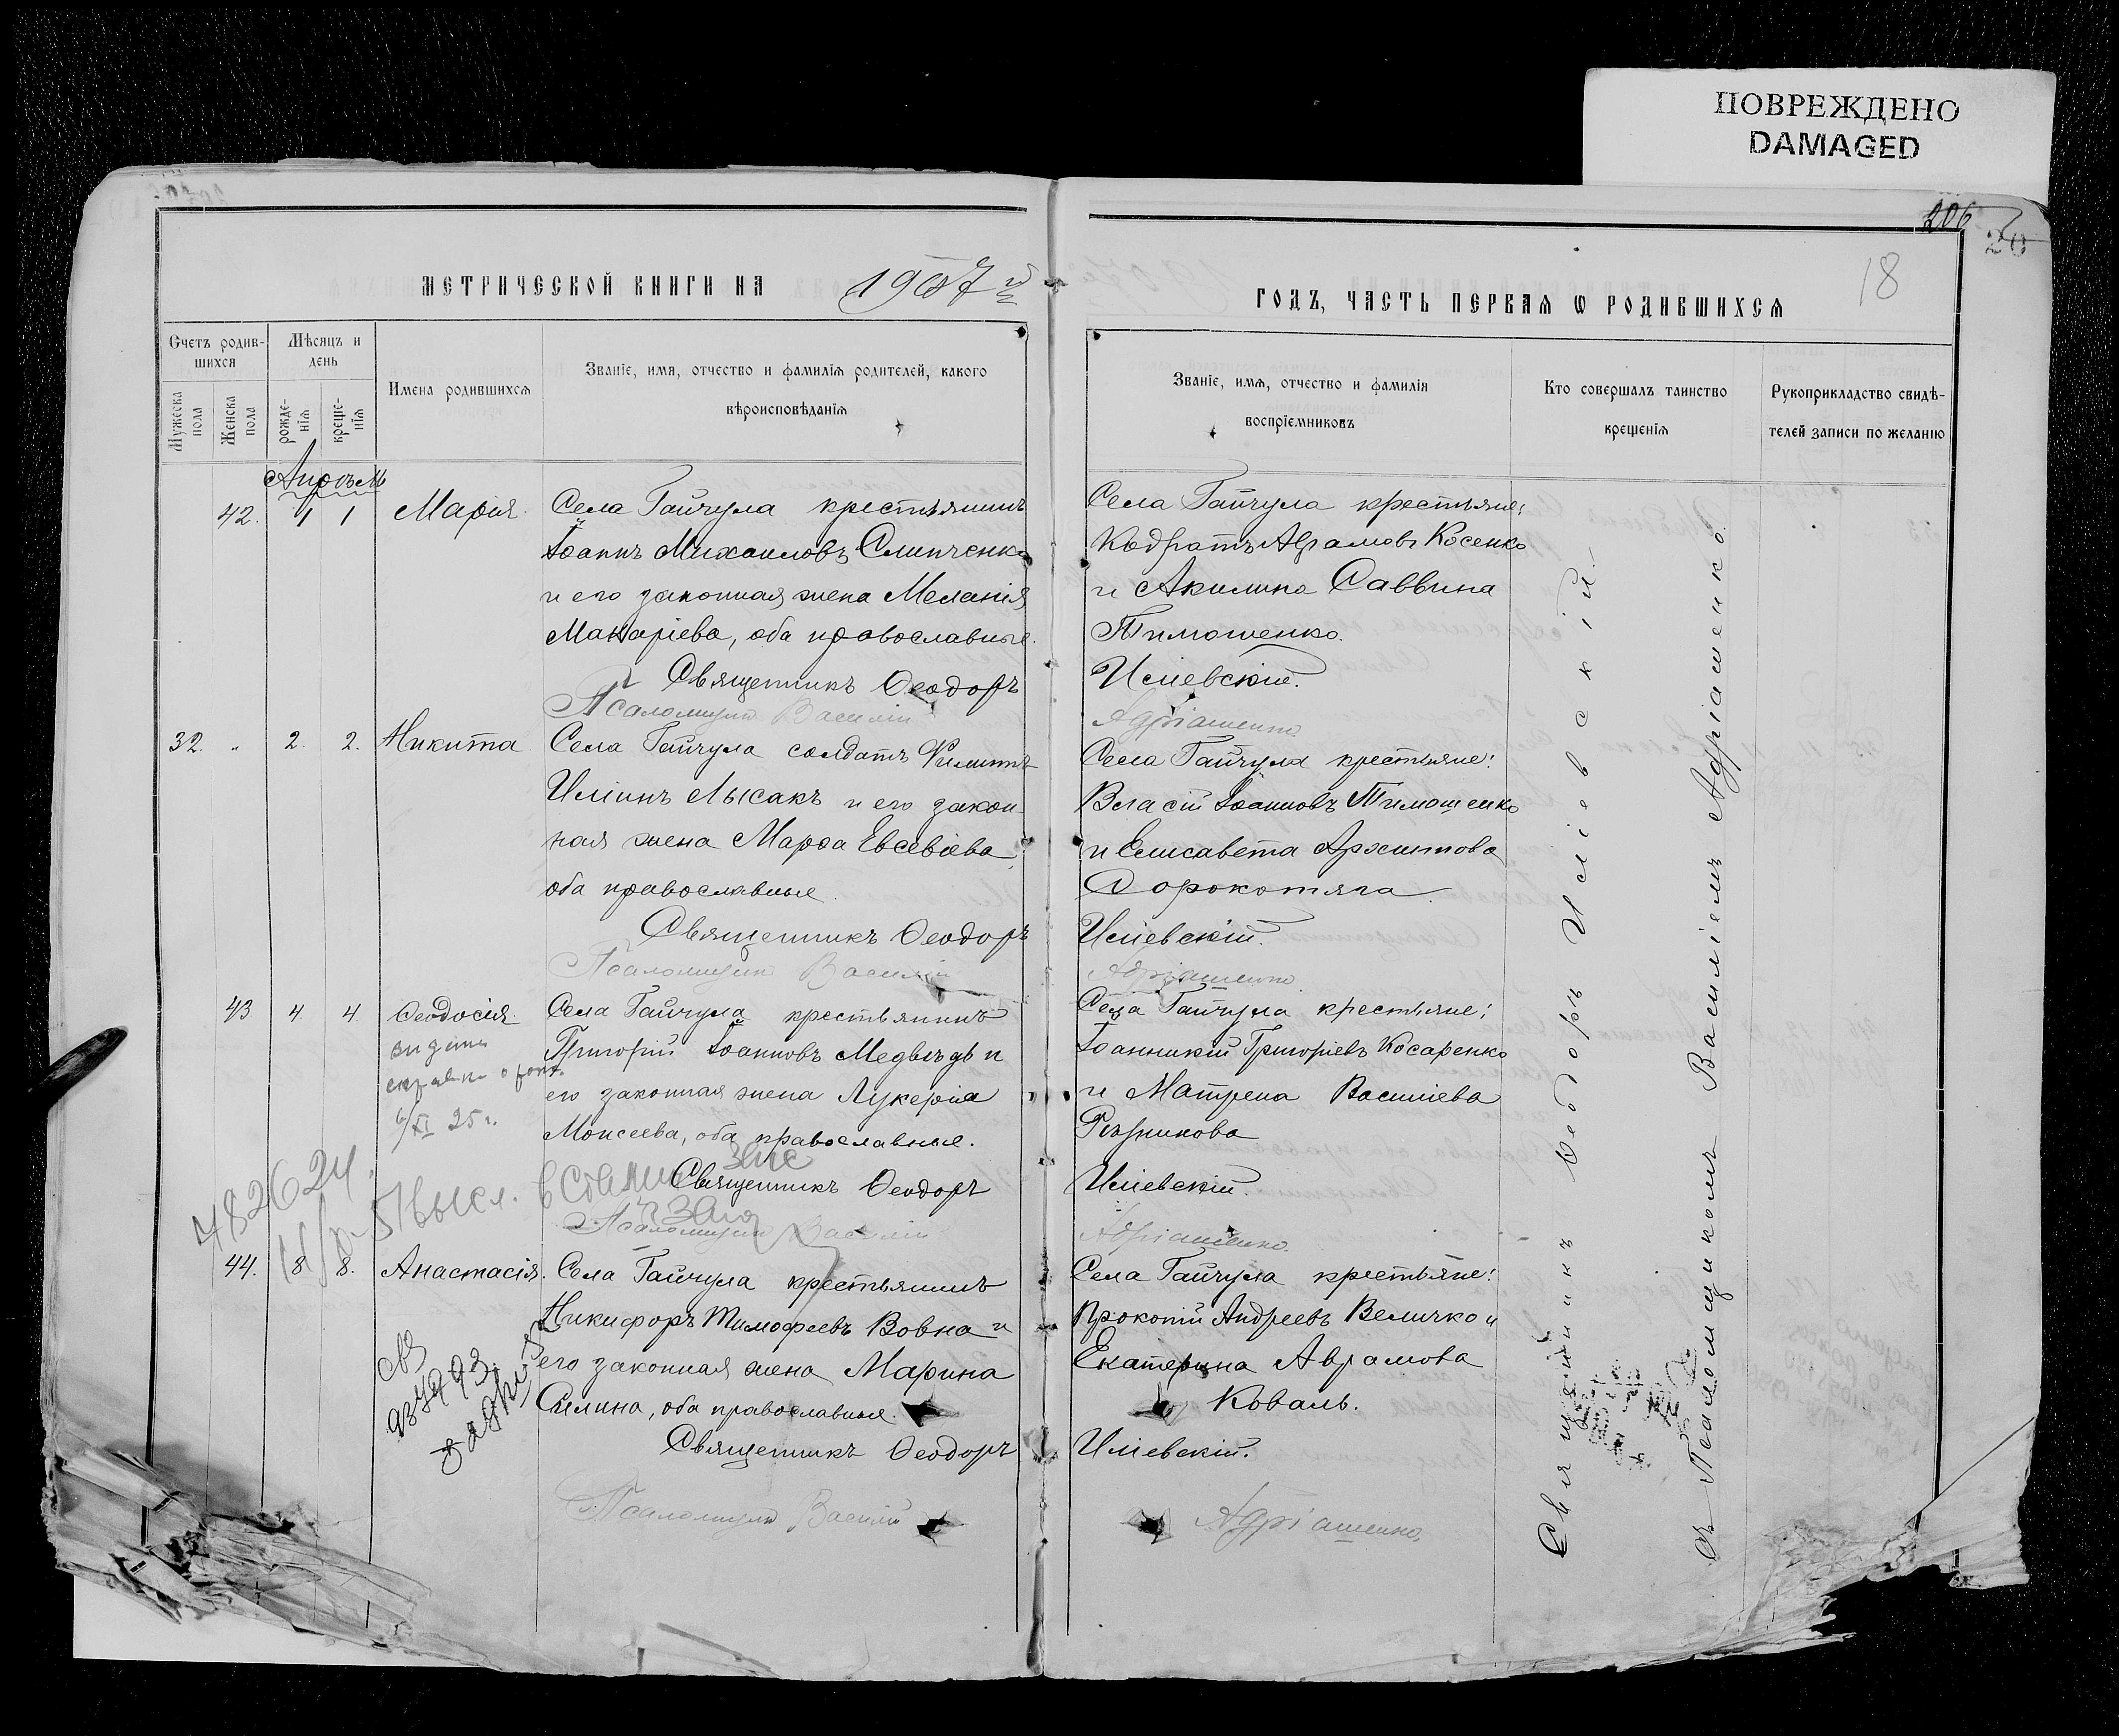 ПОВРЕЖДЕНО
DAMAGED
206
18
МЕТРИЧЕСКОЙ КНИГИ НА 1907й
ГОДЪ, ЧАСТЬ ПЕРВАЯ Ѡ РОДИВШИХСЯ
Счетъ родив-
шихся
Мужеска
пола
Женска
пола
Мѣсяцъ и
день
рожде-
нія
креще-
нія
Имена родившихся
Званіе, имя, отчество и фамилія родителей, какого
вѣроисповѣданія
Званіе, имя, отчество и фамилія
воспріемниковъ
Кто совершалъ таинство
крещенія
Рукоприкладство свидѣ-
телей записи по желанію
Апрѣль
42. 1 1 Марія
Села Гайчула крестьянинъ
Іоаннъ Михаиловъ Слипченко
и его законная жена Меланія
Макаріева, оба православные.
Священникъ Ѳеодоръ
Псаломщикъ Василій
Села Гайчула крестьяне:
Кодратъ Аврамовъ Косенко
и Акилина Саввина
Тимошенко.
Исіевскій.
Адріашенко.
32. " 2. 2. Никита
Села Гайчула солдатъ Филиппъ
Иліинъ Лысакъ и его закон-
ная жена Марѳа Евсевіева
оба православные.
Священникъ Ѳеодоръ
Псаломщикъ Василій
Села Гайчула крестьяне:
Власій Іоанновъ Тимошенко
и Елисавета Архиппова
Сорокотяга.
Исіевскій.
Адріашенко.
43 4. 4. Ѳеодосія
6/XI 25 г.
Села Гайчула крестьянинъ
Григорій Іоанновъ Медвѣдь и
его законная жена Лукерія
Моисеева, оба православные.
Священникъ Ѳеодоръ
Псаломщикъ Василій
Села Гайчула крестьяне:
Іоанникій Григоріевъ Косаренко
и Матрена Василіева
Рѣзникова
Исіевскій.
Адріашенко.
482624.
44. 8 8. Анастасія.
Села Гайчула крестьянинъ
Никифоръ Тимофеевъ Вовна и
его законная жена Марина
Силина, оба православные.
Священникъ Ѳеодоръ
Псаломщикъ Василій
Села Гайчула крестьяне:
Прокопій Андреевъ Величко и
Екатерина Аврамова
Коваль.
Исіевскій.
Адріашенко.
Священникъ Ѳеодоръ Исіевскій.
съ Псаломщикомъ Василіемъ Адріашенко.